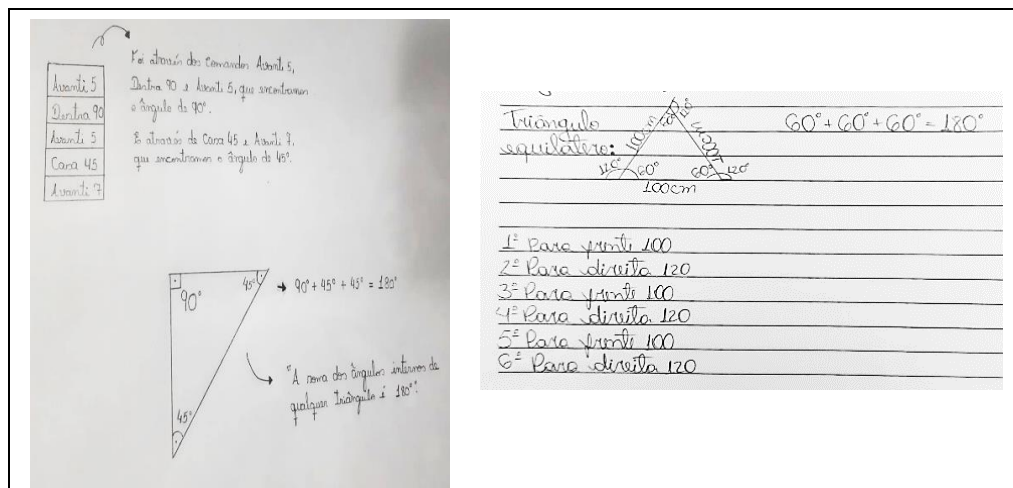 Avanti 5
Dentra 90
Avanti 5
Cana 45
Avanti 7
Foi através dos comandos Avanti 5,
Dentra 90 e Avanti 5, que encontramos
o ângulo de 90°.
E através de Cana 45 e Avanti 7,
que encontramos o ângulo de 45°.
90°
45°
45°
→ 90° + 45° + 45° = 180°
"A soma dos ângulos internos de
qualquer triângulo é 180°".
Triângulo
equilátero:
60° + 60° + 60° = 180°
100cm
100cm
60°
120°
120°
60°
60°
120°
100cm
1º Para frente 100
2º Para direita 120
3º Para frente 100
4º Para direita 120
5º Para frente 100
6º Para direita 120